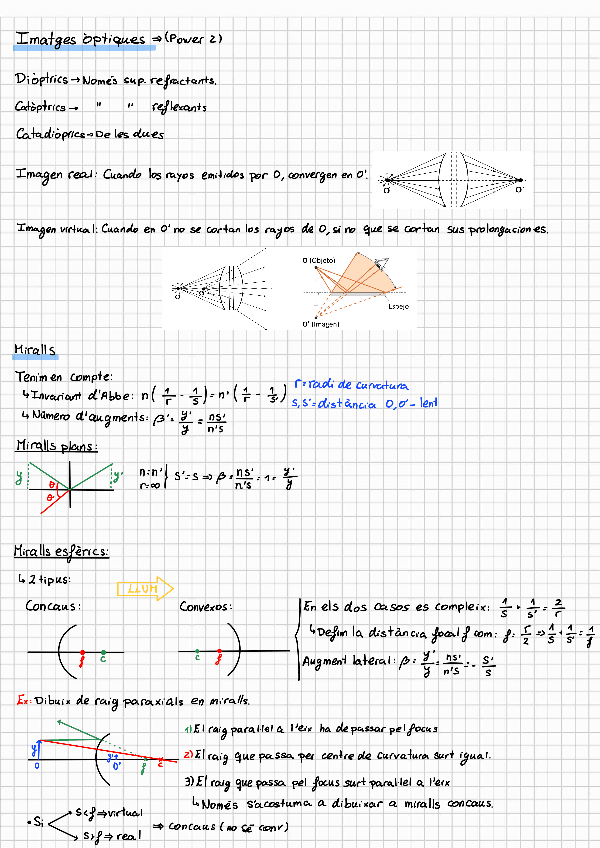 Imatges òptiques ⇒ (Power 2)
Diòptrics → Només sup. refractants.
Catòptrics → " " reflexants
Catadiòprics → De les dues
Imagen real: Cuando los rayos emitidos por O, convergen en O'.
O O'
Imagen virtual: Cuando en O' no se cortan los rayos de O, si no que se cortan sus prolongaciones.
O' O
O (Objeto)
Espejo
O' (Imagen)
Miralls
Tenim en compte:
↳ Invariant d'Abbe: n(1/r - 1/s) = n'(1/r - 1/s')
r = radi de curvatura
s, s' = distància O, O' - lent
↳ Número d'augments: β' = y'/y = ns'/n's
Miralls plans:
y θ θ' y'
n = n'
r = ∞ } s' = s ⇒ β = ns'/n's = 1 = y'/y
Miralls esfèrics:
↳ 2 tipus:
LLUM
Concaus: Convexos:
f c c f
En els dos casos es compleix: 1/s + 1/s' = 2/r
↳ Defim la distància focal f com: f = r/2 ⇒ 1/s + 1/s' = 1/f
Augment lateral: β = y'/y = ns'/n's = - s'/s
Ex: Dibuix de raig paraxials en miralls.
y O y' O' f c
1) El raig paral·lel a l'eix ha de passar pel focus
2) El raig que passa per centre de curvatura surt igual.
3) El raig que passa pel focus surt paral·lel a l'eix
↳ Només s'acostuma a dibuixar a miralls concaus.
• Si s<f ⇒ virtual
s>f ⇒ real
⇒ concaus (no sé conv)